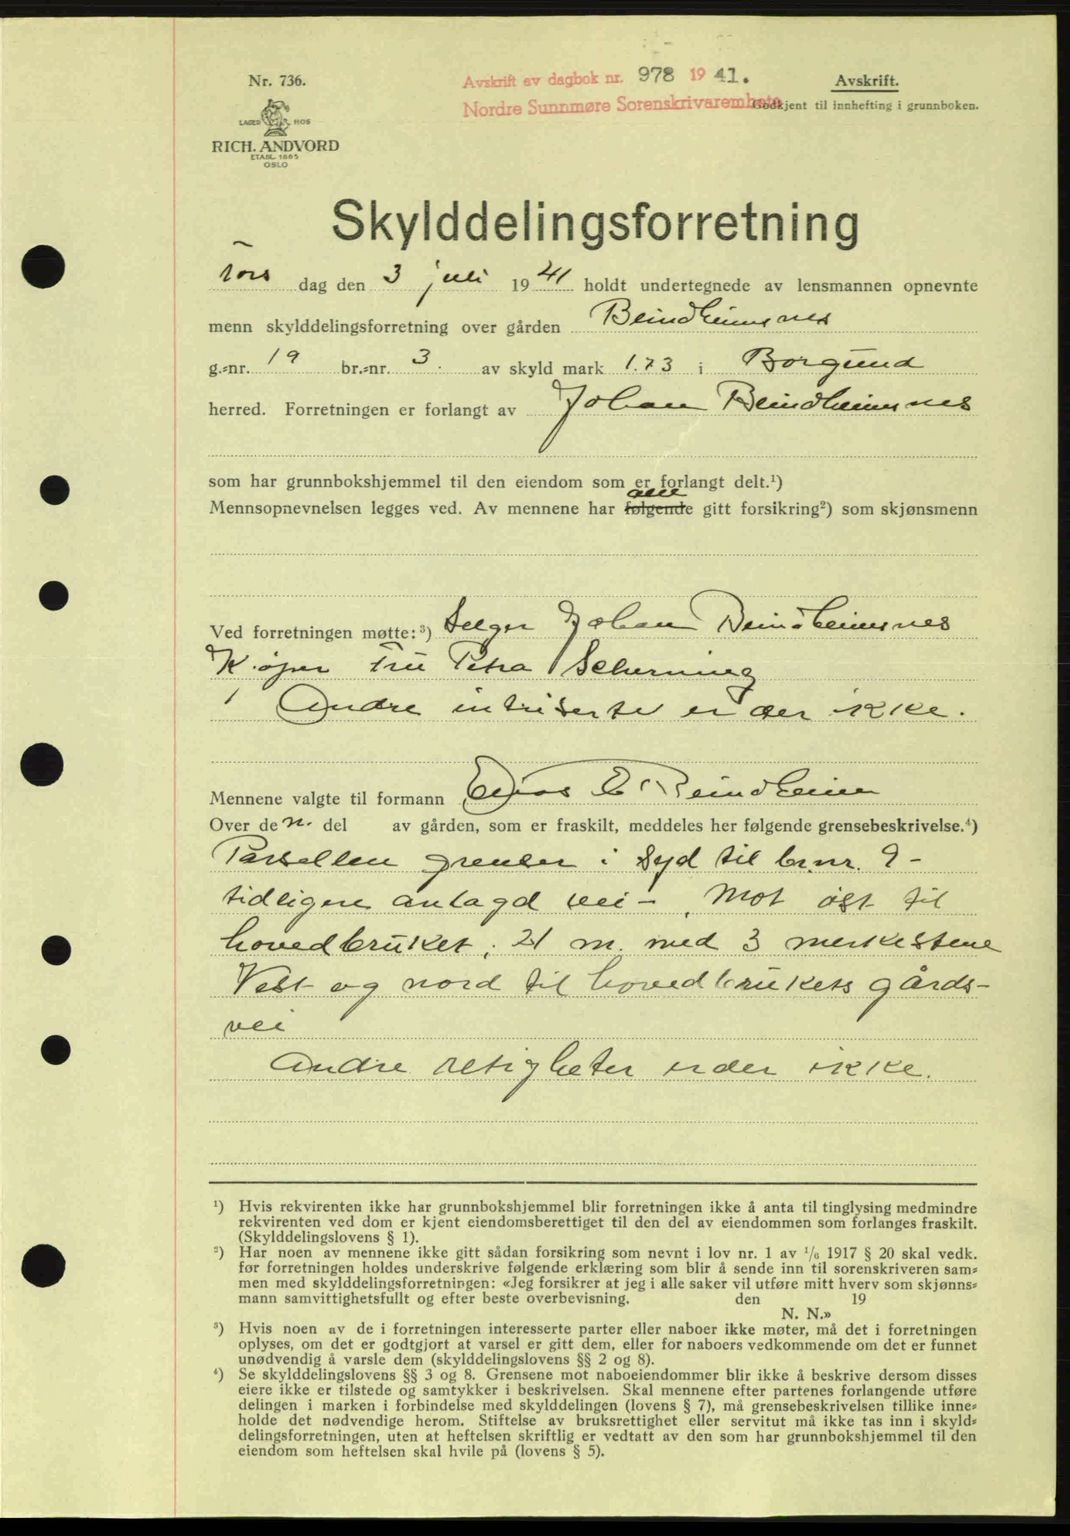 Nr. 736.
LAGER HOS
RICH. ANDVORD
ETABL. 1865
OSLO
Avskrift av dagbok nr. 978 1941.
Nordre Sunnmøre Sorenskriverembete
Avskrift.
Godkjent til innhefting i grunnboken.
Skylddelingsforretning
Tors dag den 3 juli 1941 holdt undertegnede av lensmannen opnevnte
menn skylddelingsforretning over gården Beindheimsnes
g.=nr. 19 br.=nr. 3. av skyld mark 1.73 i Borgund
herred. Forretningen er forlangt av Johan Beindheimsnes
som har grunnbokshjemmel til den eiendom som er forlangt delt.¹)
alle
Mennsopnevnelsen legges ved. Av mennene har følgende gitt forsikring²) som skjønsmenn
Ved forretningen møtte:³) Selger Johan Beindheimsnes
Kjøper Fru Petra Scherning
Andre intriserte er der ikke.
Mennene valgte til formann E Beindheim
Over den. del av gården, som er fraskilt, meddeles her følgende grensebeskrivelse.⁴)
Parsellen grenser i syd til br.nr. 9 -
tidligere anlagd vei - , Mot øst til
hovedbruket, 21 m. med 3 merkestene
Vest og nord til hovedbrukets gårds-
vei
Andre retigheter er der ikke.
¹) Hvis rekvirenten ikke har grunnbokshjemmel blir forretningen ikke å anta til tinglysing medmindre
rekvirenten ved dom er kjent eiendomsberettiget til den del av eiendommen som forlanges fraskilt.
(Skylddelingslovens § 1).
²) Har noen av mennene ikke gitt sådan forsikring som nevnt i lov nr. 1 av ¹/₆ 1917 § 20 skal vedk.
før forretningen holdes underskrive følgende erklæring som blir å sende inn til sorenskriveren sam=
men med skylddelingsforretningen: «Jeg forsikrer at jeg i alle saker vil utføre mitt hverv som skjønns=
mann samvittighetsfullt og efter beste overbevisning. den 19
N. N.»
³) Hvis noen av de i forretningen interesserte parter eller naboer ikke møter, må det i forretningen
oplyses, om det er godtgjort at varsel er gitt dem, eller for naboers vedkommende om det er funnet
unødvendig å varsle dem (skylddelingslovens §§ 2 og 8).
⁴) Se skylddelingslovens §§ 3 og 8. Grensene mot naboeiendommer blir ikke å beskrive dersom disses
eiere ikke er tilstede og samtykker i beskrivelsen. Skal mennene efter partenes forlangende utføre
delingen i marken i forbindelse med skylddelingen (lovens § 7), må grensebeskrivelsen tillike inne=
holde det nødvendige herom. Stiftelse av bruksrettighet eller servitut må ikke tas inn i skyld=
delingsforretningen, uten at heftelsen skriftlig er vedtatt av den som har grunnbokshjemmel til den
eiendom som heftelsen skal hvile på (lovens § 5).